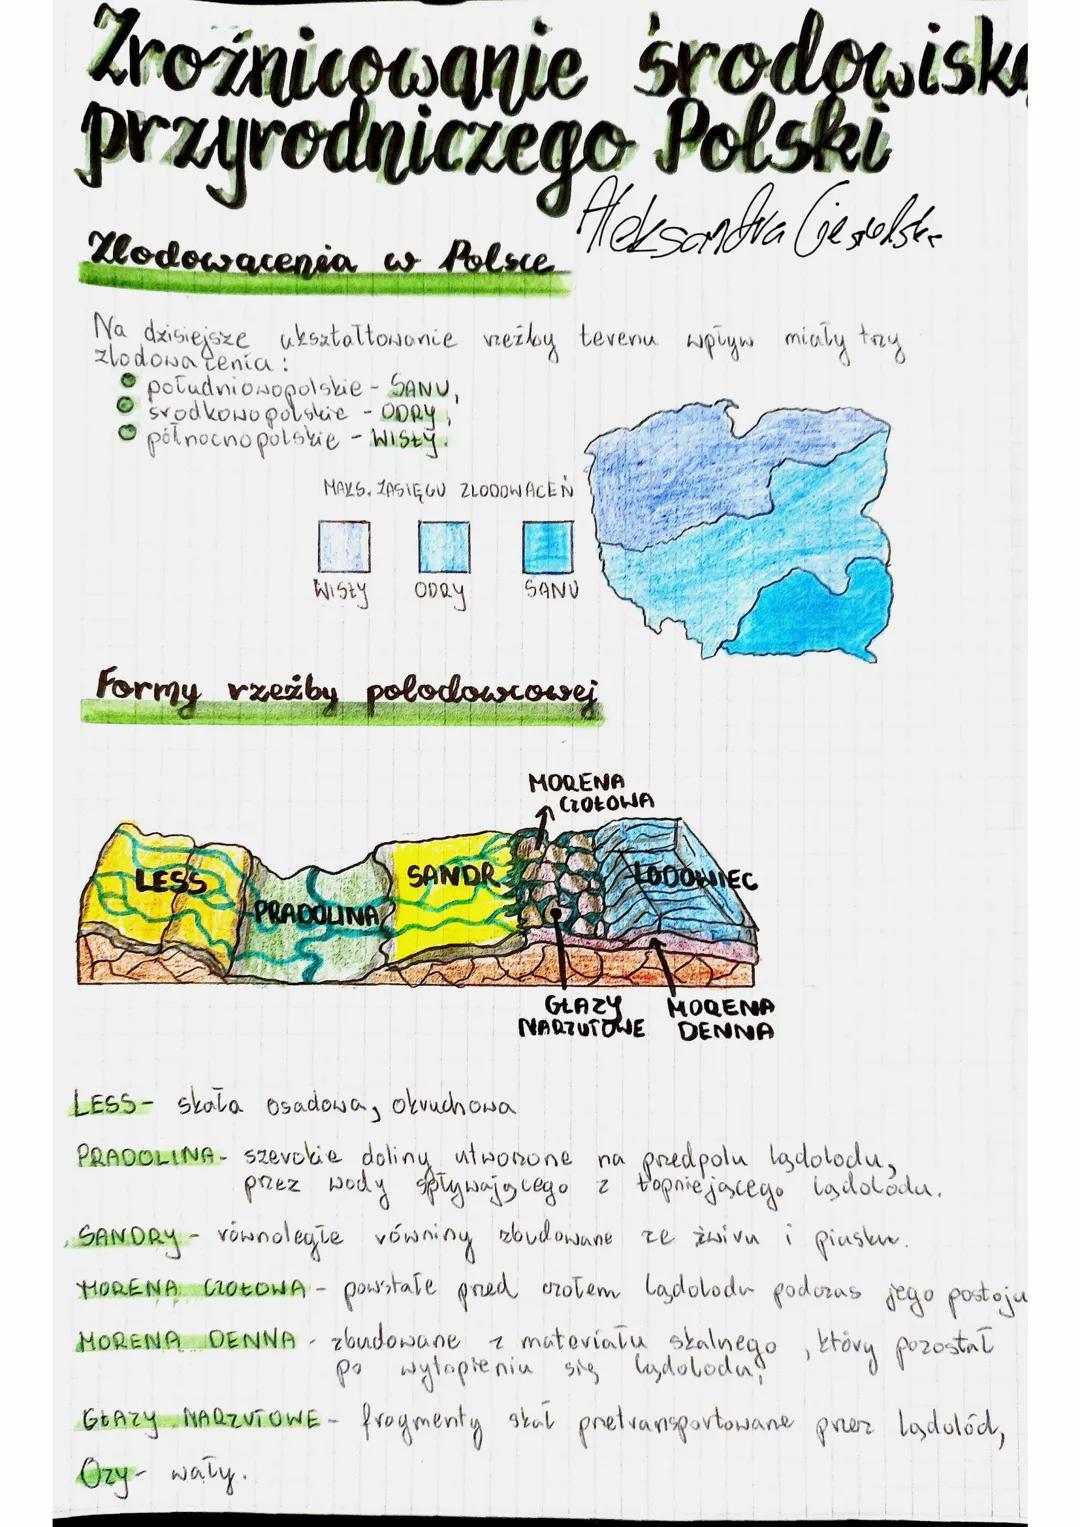 Zróżnicowanie środowiska
przyrodniczego Polski
Aleksandra
Zlodowacenia w Polsce
Na dzisiejsze ukształtowanie rzeźby terenu wpływ miały trzy
zlodowacenia:
południowopolskie - SANU,
środkowopolskie - ODRY,
północnopolskie - WISŁY.
MAKS. ZASIĘGU ZLODOWACEŃ
WISŁY ODRY SANU
Formy rzeźby polodowcowej
MORENA
CZOŁOWA
LESS
PRADOLINA
SANDR
LODOWIEC
GŁAZY
NARZUTOWE
MORENA
DENNA
LESS- skała osadowa, okruchowa
PRADOLINA- szerokie doliny utworzone na przedpolu lądolodu,
przez wody spływającego z topniejącego lądolodu.
SANDRY - równoległe równiny zbudowane ze żwiru i piasku.
MORENA CZOŁOWA - powstałe przed czołem lądolodu podczas jego postoju
MORENA DENNA - zbudowane z materiału skalnego, który pozostał
po wytopieniu się lądolodu,
GŁAZY NARZUTOWE - fragmenty skał przetransportowane przez lądolód,
Ozy- wały.